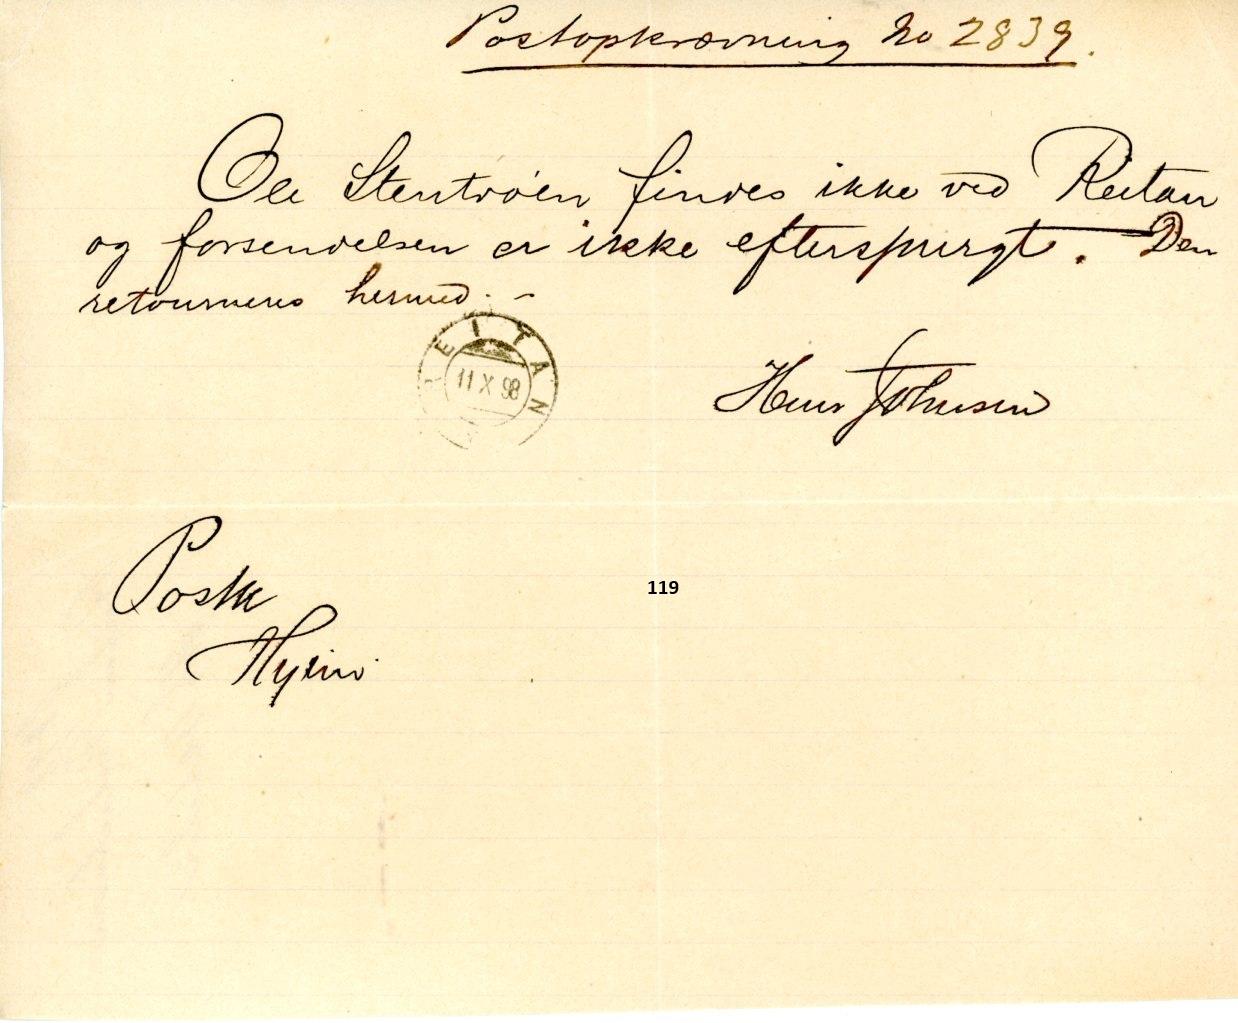 Postopkrævning No 2839.
Ole Stentrøen findes ikke ved Reitan
og forsendelsen er ikke efterspurgt. Den
retourneres hermed. –
REITAN
11 X 98
Johnsen
119